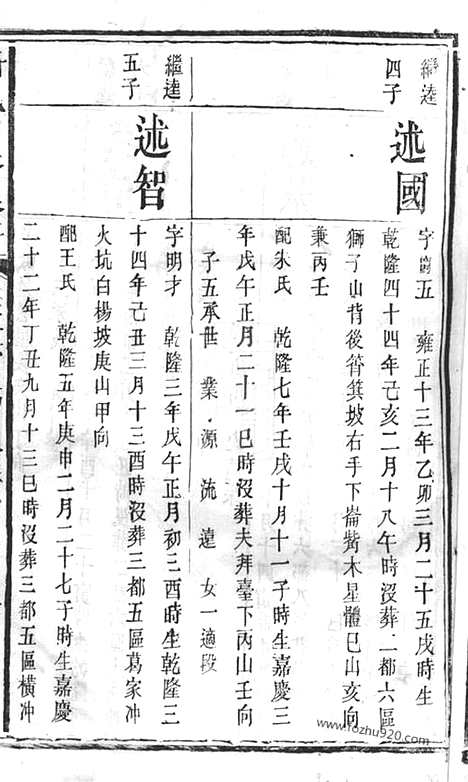 繼逵
四子
述國
字 五 雍正十三年乙卯三月二十五戌時生
乾隆四十四年己亥二月十八午時沒葬二都六區
獅子山背後筲箕坡右手下崙觜木星體巳山亥向
兼丙壬
配朱氏 乾隆七年壬戌十月十一子時生嘉慶三
年戊午正月二十一巳時沒葬夫拜臺下丙山壬向
子五承世 業 源 流 遠 女一適段
繼逵
五子
述智
字明才 乾隆三年戊午正月初三酉時生乾隆三
十四年己丑三月十三酉時沒葬三都五區葛家冲
火坑白楊坡庚山甲向
配王氏 乾隆五年庚申二月二十七子時生嘉慶
二十二年丁丑九月十三巳時沒葬三都五區橫冲
www.fozhu920.com